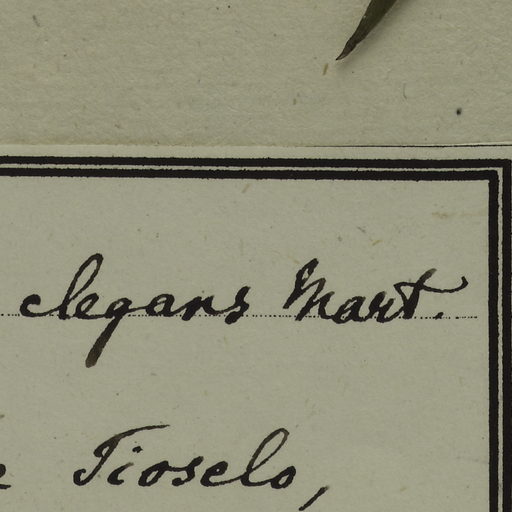 elegans Mart.
Tioselo,